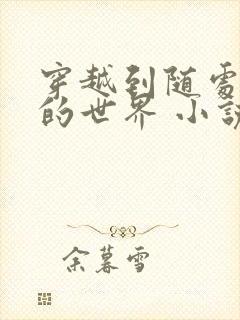 穿越到随處
的世界 小說
余暮雪